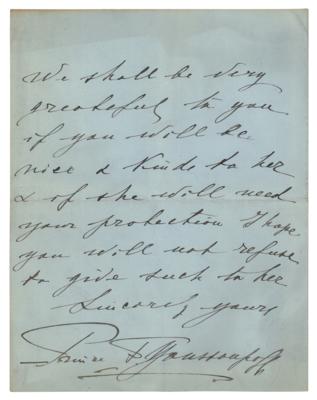 We shall be very
greateful to you
if you will be
nice & kind to her
& if she will need
your protection I hope
you will not refuse
to give such to her
Sincerely yours
Prince F Youssoupoff